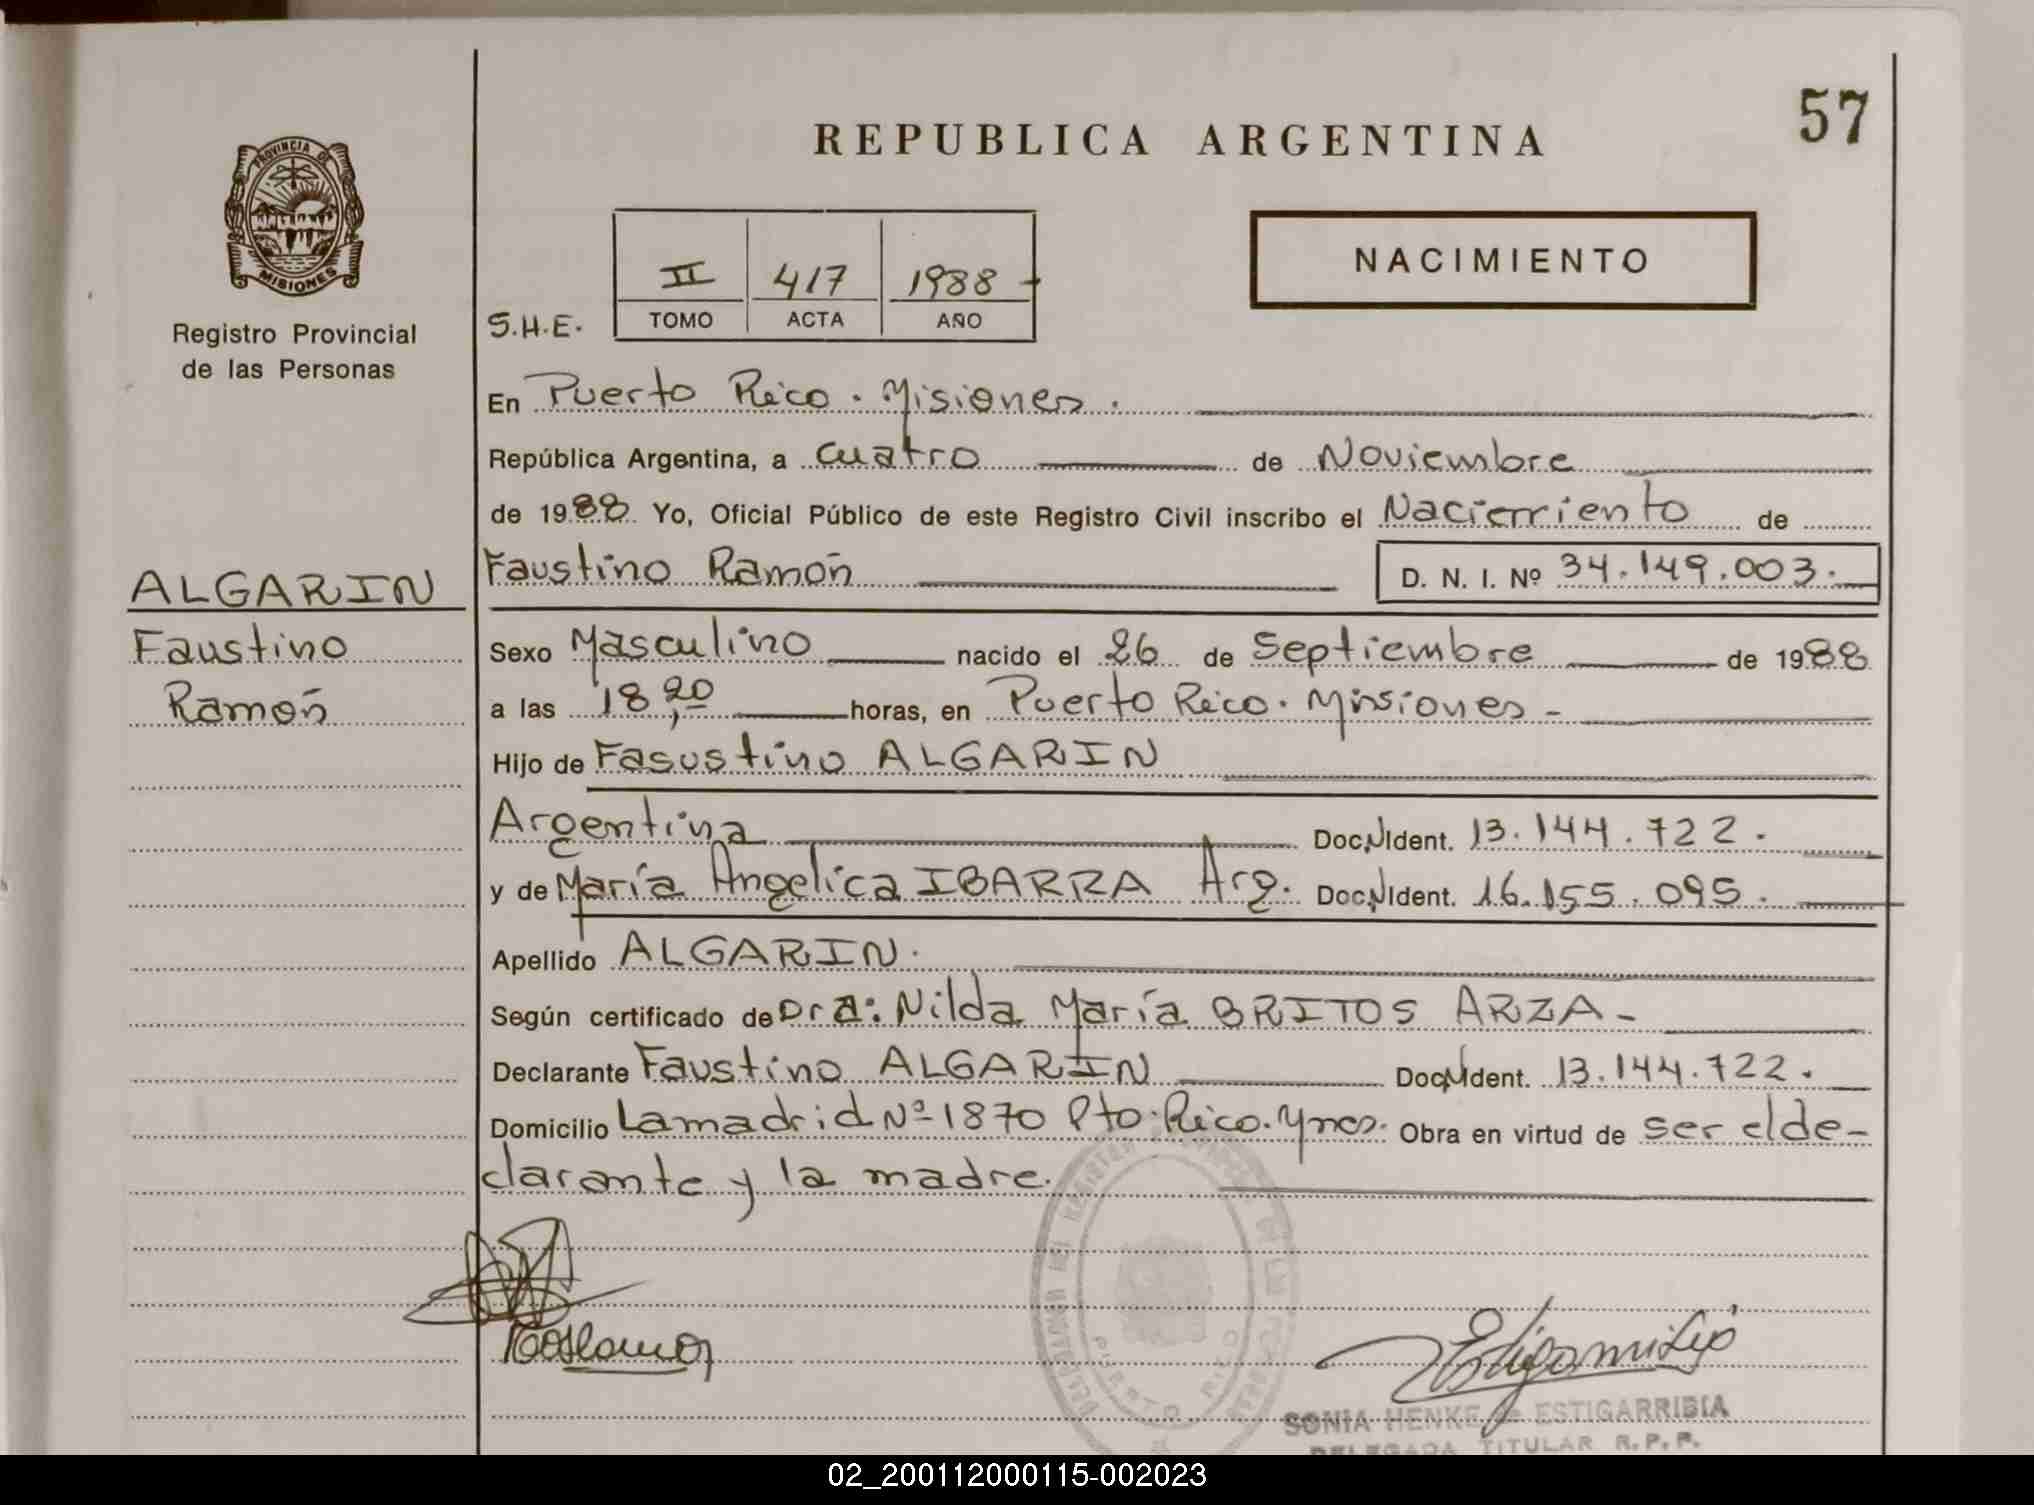 57
REPUBLICA ARGENTINA
PROVINCIA DE
MISIONES
NACIMIENTO
II 417 1988
TOMO ACTA AÑO
S.H.E.
Registro Provincial
de las Personas
En Puerto Rico. Misiones.
República Argentina, a cuatro de Noviembre
de 1988 Yo, Oficial Público de este Registro Civil inscribo el Nacimiento de
ALGARIN
Faustino Ramón D. N. I. Nº 34.149.003.
Faustino
Ramón
Sexo Masculino nacido el 26 de Septiembre de 1988
a las 18,20 horas, en Puerto Rico. Misiones -
Hijo de Fasustino ALGARIN
Argentina Doc. Ident. 13.144.722.
y de María Angelica IBARRA Arg. Doc. Ident. 16.155.095.
Apellido ALGARIN.
Según certificado de Dra: Nilda María BRITOS ARZA -
Declarante Faustino ALGARIN Doc. Ident. 13.144.722.
Domicilio Lamadrid Nº 1870 Pto. Rico. Mnes. Obra en virtud de ser el de-
clarante y la madre.
PUERTO RICO
SONIA HENKE de ESTIGARRIBIA
DELEGADA TITULAR R.P.P.
02_200112000115-002023